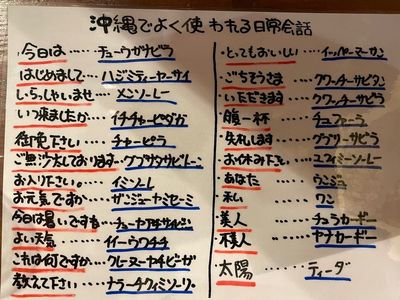 沖縄でよく使われる日常会話
今日は……チューウガナビラ
はじめまして……ハジミティーヤーサイ
いらっしゃいませ……メンソーレー
いつ来ましたか……イチチャービタガ
御免下さい……チャービラ
ご無沙汰しております……グブサタサビターン
お入り下さい。……イミソーレ
お元気ですか……ガンジューナミセーミ
今日は暑いですね……チューヤアチサイビーン
よい天気……イイーウワチチ
これは何ですか……クレーヌーヤチビーガ
教えて下さい……ナラーチクィミソーリ
とってもおいしい……イッペーマーサン
ごちそうさま……クワッチーサビタン
いただきます……クワッチーサビラ
腹一杯……チュファーラ
失礼します……グブリーサビラ
お休み下さい……ユクィミソーレー
あなた……ウンジュ
私……ワン
美人……チュラカーギー
不美人……ヤナカーギー
太陽……ティーダ